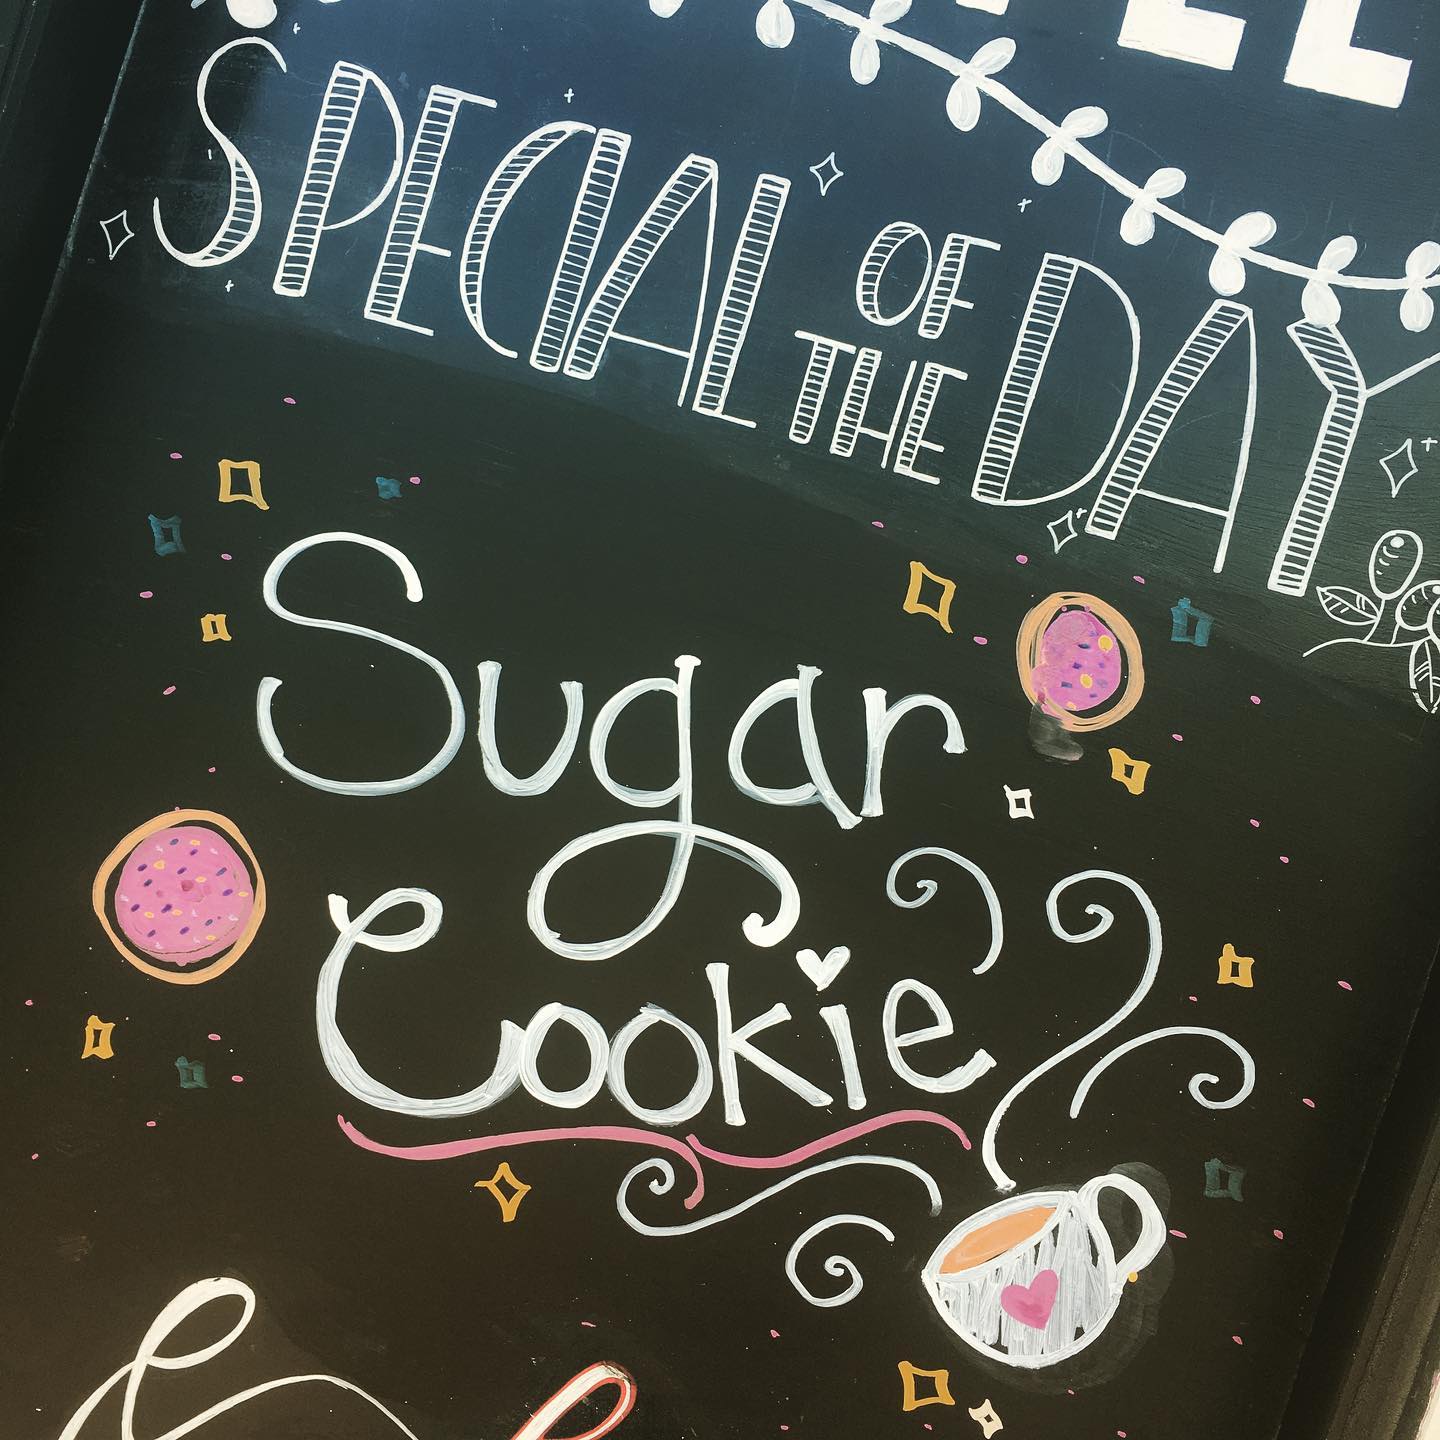 SPECIAL OF THE DAY
Sugar
Cookie